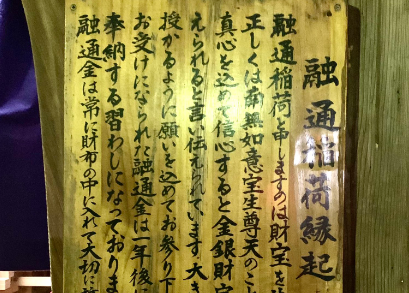 融通稲荷縁起
融通稲荷と申しますのは財宝を
正しくは南無如意宝生尊天のこ
真心を込めて信心すると金銀財宝
えられると言い伝えられています 大き
授かるように願いを込めてお参り下
お受けになられた融通金は一年後に
奉納する習わしになっておりま
融通金は常に財布の中に入れて大切に